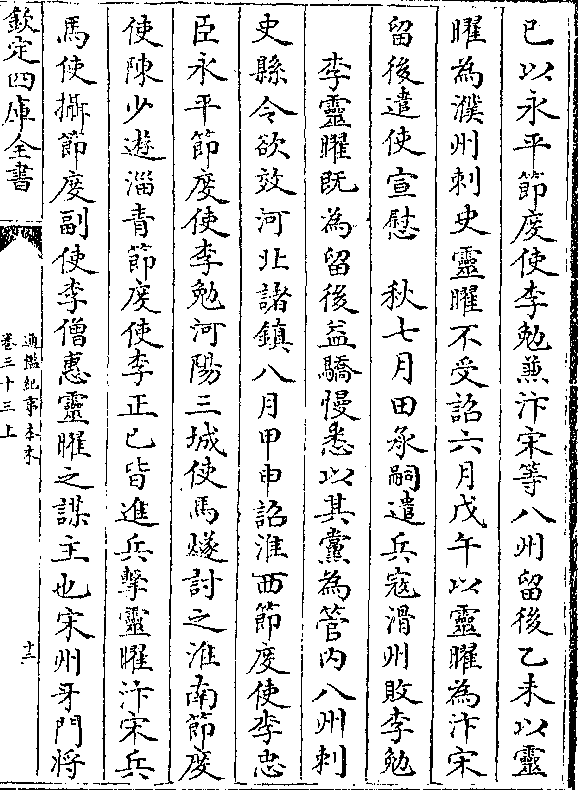 已以永平節度使李勉兼汴宋等八州留後乙未以靈
曜為濮州刺史靈曜不受詔六月戊午以靈曜為汴宋
留後遣使宣慰　秋七月田承嗣遣兵寇滑州敗李勉
李靈曜既為留後益驕慢悉以其黨為管内八州刺
史縣令欲效河北諸鎮八月甲申詔淮西節度使李忠
臣永平節度使李勉河陽三城使馬燧討之淮南節度
使陳少遊淄青節度使李正已皆進兵擊靈曜汴宋兵
馬使攝節度副使李僧惠靈曜之謀主也宋州牙門將
欽定四庫全書
通鑑紀事本末
卷三十三上
十三